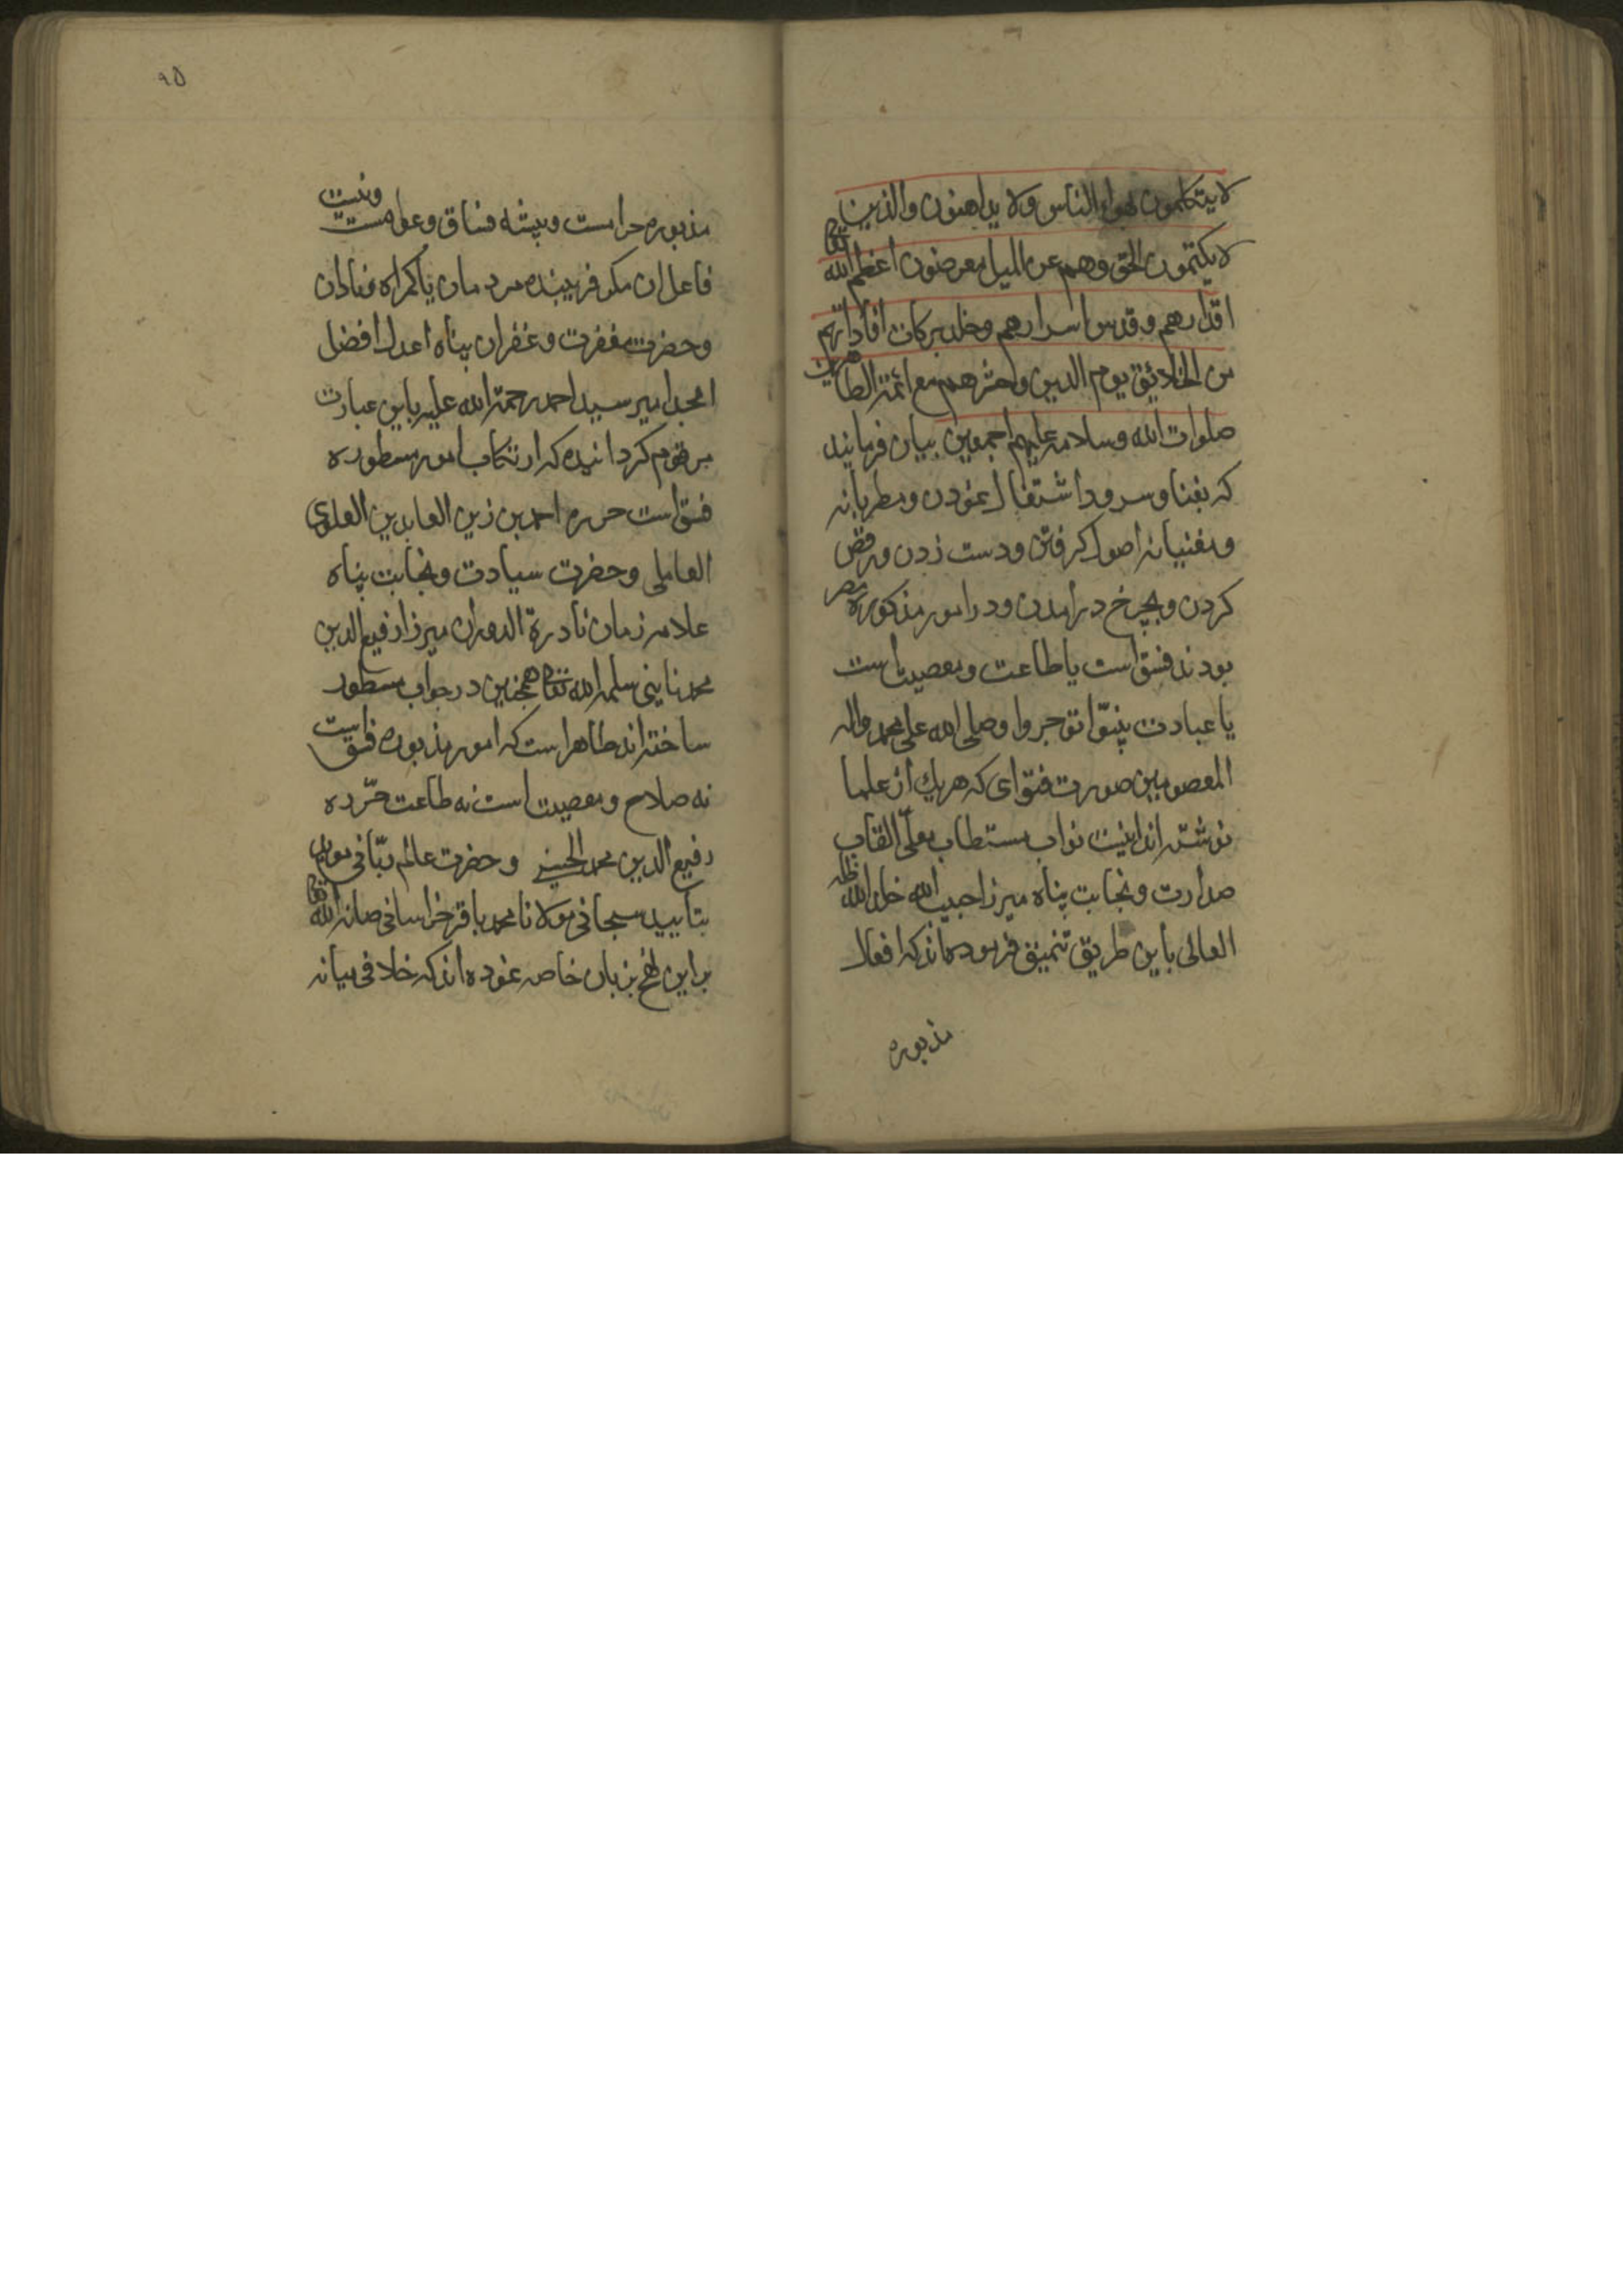 لا یتکلمون بهواء الناس ولا یداهنون والذین
لا یکتمون الحق وهم عن المیل معرضون اعظم الله تعالی
اقدارهم وقدس اسرارهم وخلد برکات افاداتهم
من الخلائق یوم الدین واحشرهم مع ائمة الطاهرین
صلوات الله وسلامه علیهم اجمعین بیان فرمایند
که بغنا و سرود اشتغال نمودن و مطربانه
و مغنیانه اصول کرفتن و دست زدن و رقص
کردن و بچرخ درامدن و در امور مذکوره مصر
بودند فسق است یا طاعت و معصیت است
یا عبادت بینوا توجروا وصلی الله علی محمد واله
المعصومین صورت فتوای که هریك از علما
نوشته اند اینست نواب مستطاب معلی القاب
صدارت و نجابت پناه میرزا حبیب الله خلد الله ظله
العالی باین طریق تنمیق فرموده اند که افعال
مذبوره
۹۵
مذبوره حرامست و پیشه فساق و عوامست ونیست
فاعل ان مکر فریبنده مردمان یا کمراه و نادان
وحضرت مغفرت و غفران پناه اعدل افضل
امجد امیر سید احمد رحمة الله علیه باین عبارت
مرقوم کردانیده که ارتکاب امور مسطوره
فسق است حرره احمد بن زین العابدین العلوی
العاملی وحضرت سیادت و نجابت پناه
علامه زمان نادرة الدوران میرزا رفیع الدین
محمد نایینی سلمه الله تعالی همچنین در جواب مسطور
ساخته اند ظاهر است که امور مذبوره فسق است
نه صلاح و معصیت است نه طاعت حرّره
رفیع الدین محمد الحسینی وحضرت عالم ربّانی موید
بتأیید سبحانی مولانا محمد باقر خراسانی صانه الله تعالی
براین نهج بزبان خامه نموده اند که خلافی میانه